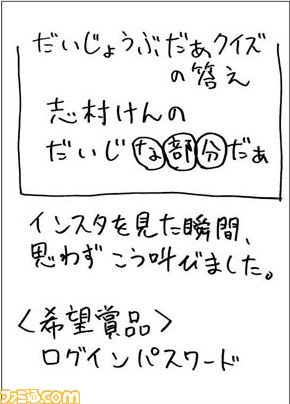 だいじょうぶだぁクイズ
の答え
志村けんの
だいじな部分だぁ
インスタを見た瞬間、
思わずこう叫びました。
<希望賞品>
ログインパスワード
ファミ通.com